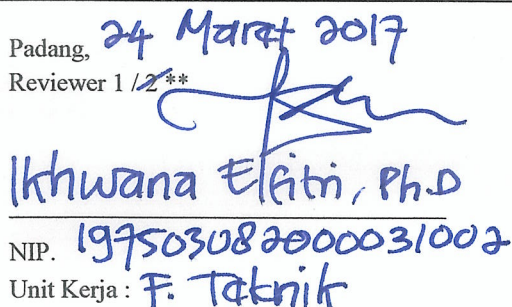 Padang, 24 Maret 2017
Reviewer 1 / 2 **
Ikhwana Elfitri, Ph.D
NIP. 197503082000031002
Unit Kerja : F. Teknik